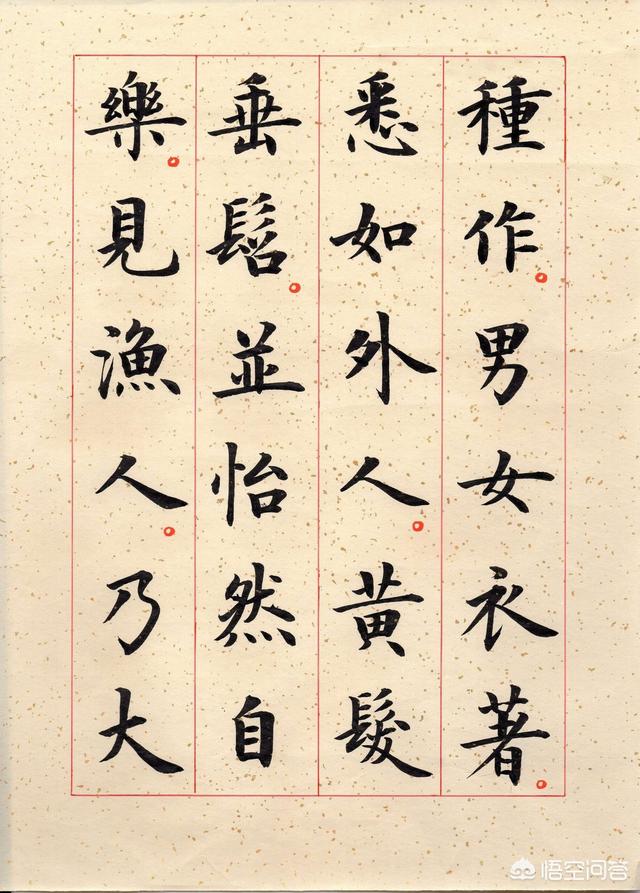 種作。男女衣著。
悉如外人。黃髮
垂髫。並怡然自
樂。見漁人。乃大
悟空问答